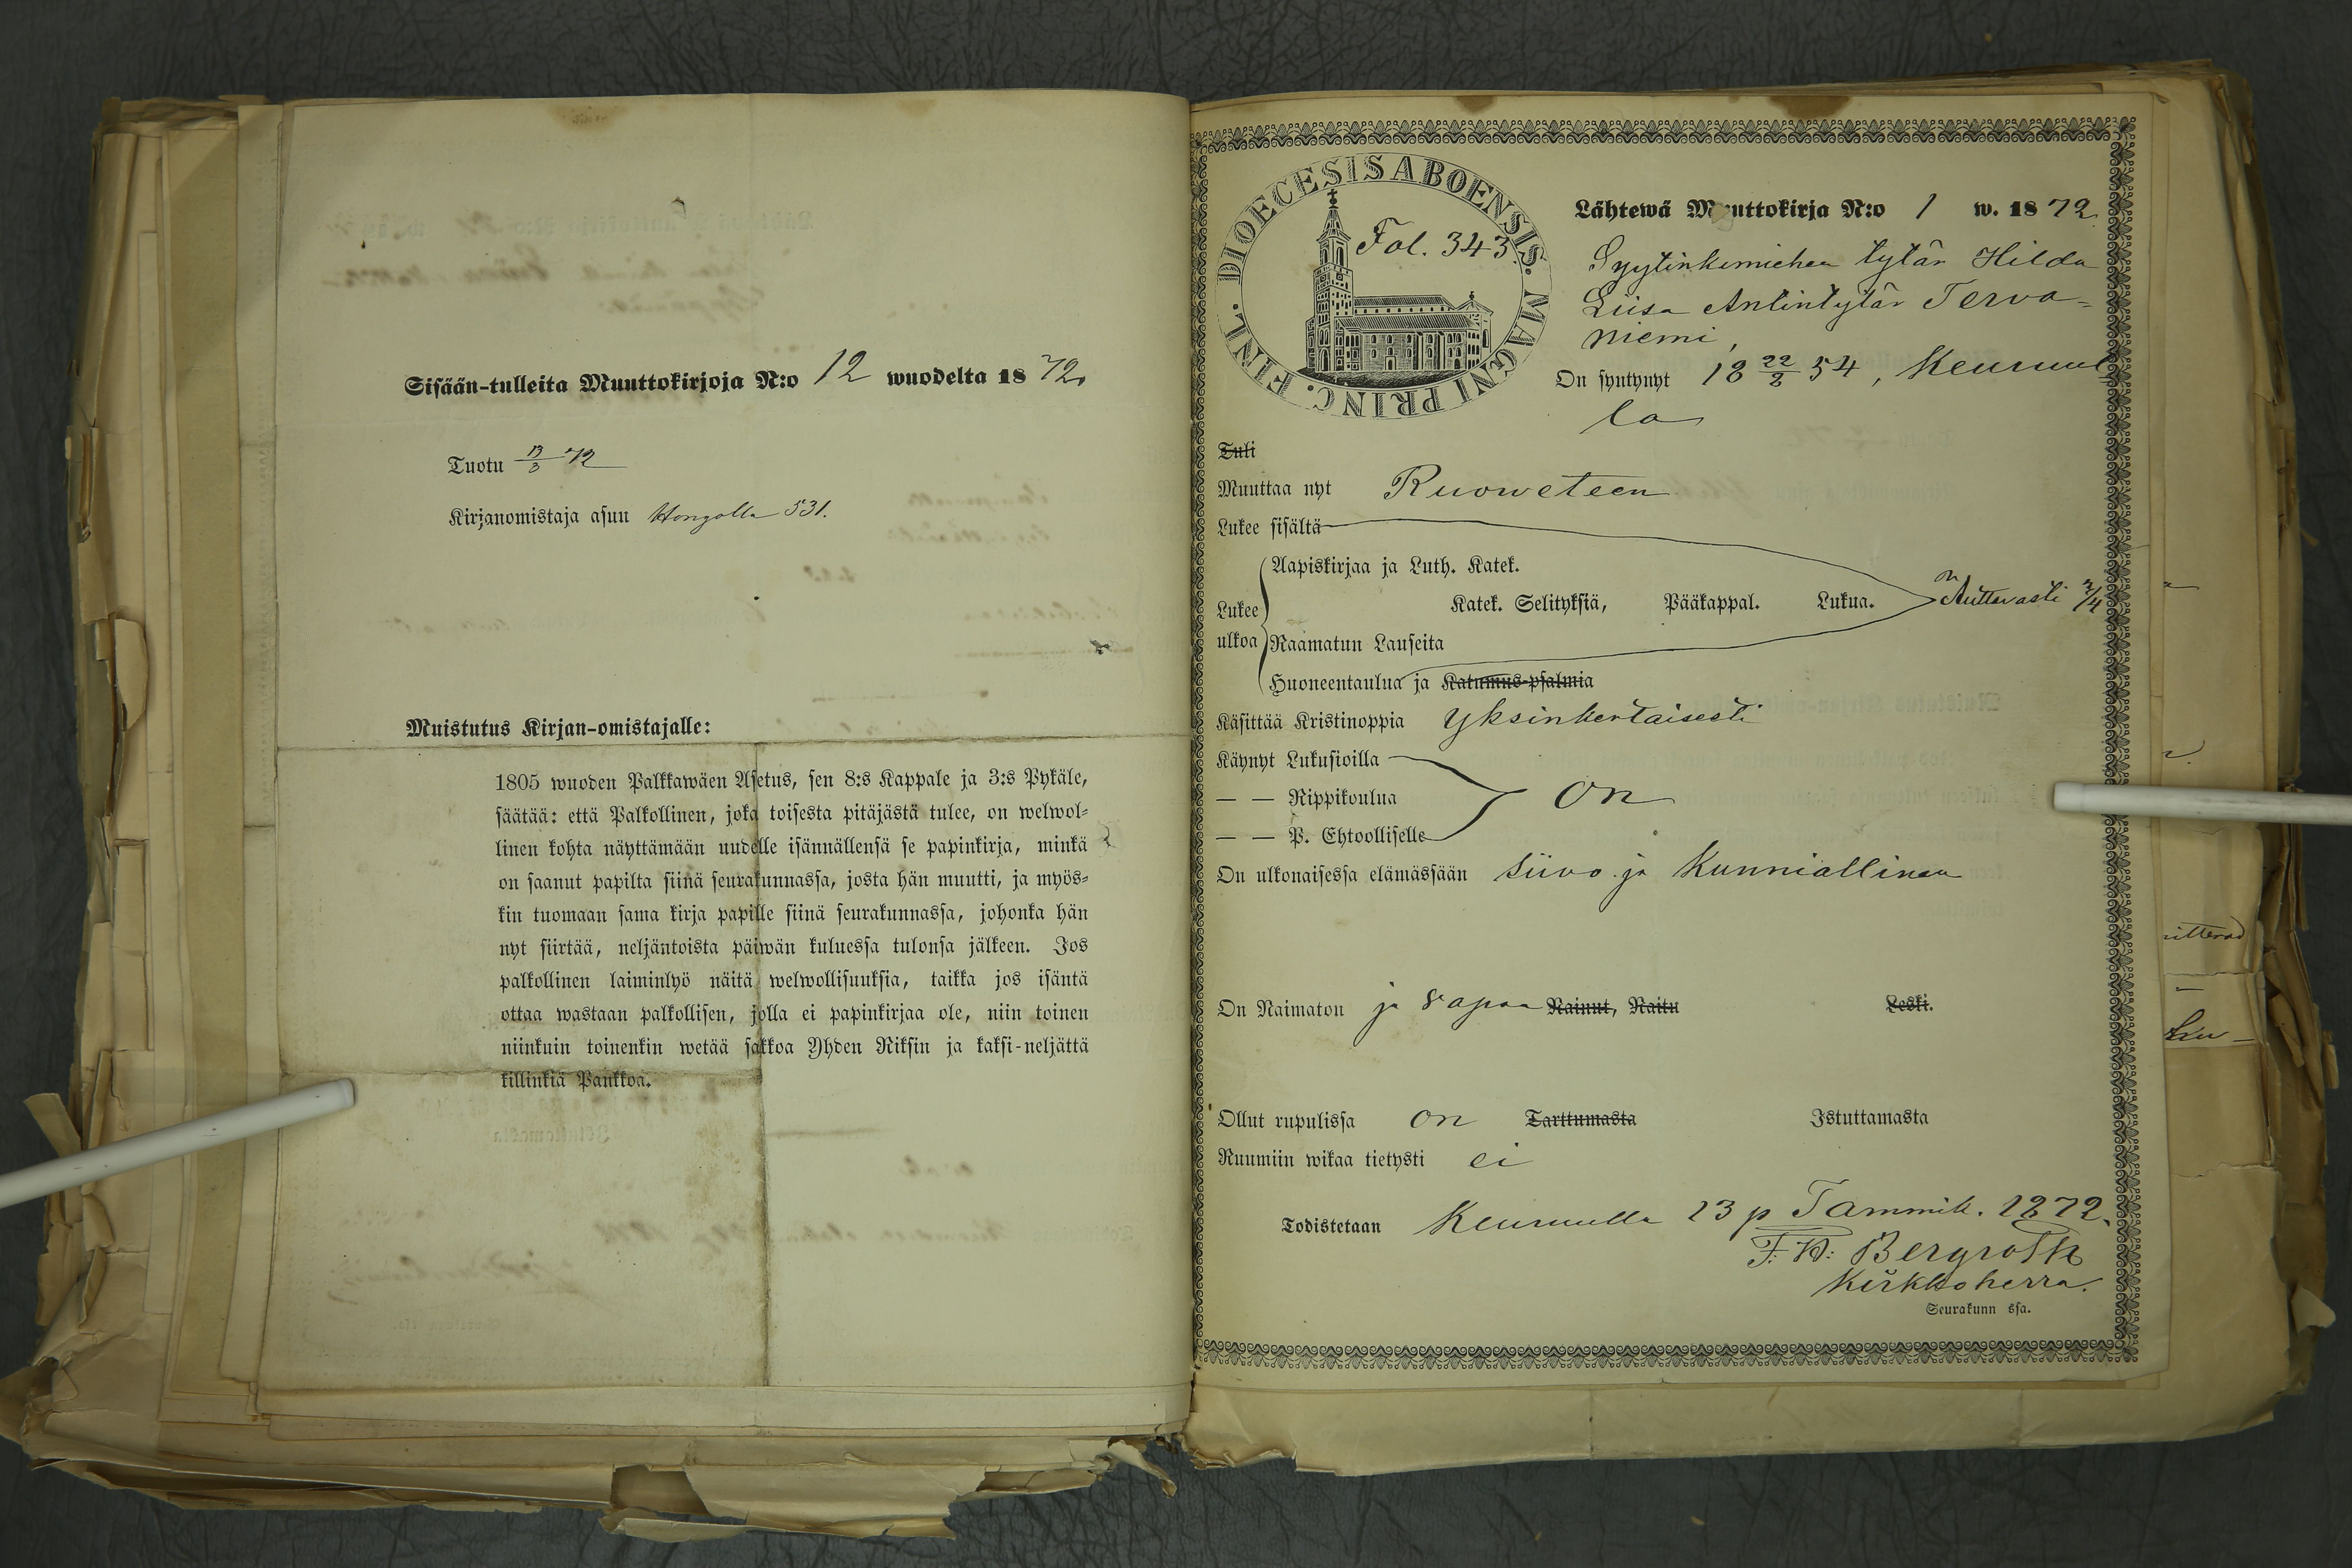 Sisään-tulleita Muuttokirjoja N:o 12 wuodelta 18 72.
Tuotu 13/3 72
Kirjanomistaja asuu Hongolla 531.
Muistutus Kirjan-omistajalle:
1805 wuoden Palkkawäen Asetus, sen 8:s Kappale ja 3:s Pykäle,
säätää: että Palkollinen, joka toisesta pitäjästä tulee, on welwol-
linen kohta näyttämään uudelle isännällensä se papinkirja, minkä
on saanut papilta siinä seurakunnassa, josta hän muutti, ja myös-
kin tuomaan sama kirja papille siinä seurakunnassa, johonka hän
nyt siirtää, neljäntoista päiwän kuluessa tulonsa jälkeen. Jos
palkollinen laiminlyö näitä welwollisuuksia, taikka jos isäntä
ottaa wastaan palkollisen, jolla ei papinkirjaa ole, niin toinen
niinkuin toinenkin wetää sakkoa Yhden Riksin ja kaksi-neljättä
killinkiä Pankkoa.
DIOECESIS ABOENSIS. MAGNI PRINC. FINL.
Fol. 343.
Lähtewä Muuttokirja N:o 1 w. 18 72
Syytinkimiehen tytär Hilda
Liisa Antintytär Terva-
niemi,
On syntynyt 18 22/8 54, Keuruul
la
Tuli
Muuttaa nyt Ruoweteen
Lukee sisältä
Aapiskirjaa ja Luth. Katek.
Lukee ulkoa Katek. Selityksiä, Pääkappal. Lukua. Auttavasti
Raamatun Lauseita
Huoneentaulua ja Katumus-psalmia
Käsittää Kristinoppia yksinkertaisesti
Käynyt Lukusioilla
— — Rippikoulua on
— — P. Ehtoolliselle
On ulkonaisessa elämässään siivo ja Kunniallinen
On Naimaton ja vapaa Nainut, Naitu Leski.
Ollut rupulissa on Tarttumasta Istuttamasta
Ruumiin wikaa tietysti ei
Todistetaan Keuruulla 13 p Tammik. 1872.
F: W: Bergroth
Kirkkoherra.
Seurakunn ssa.